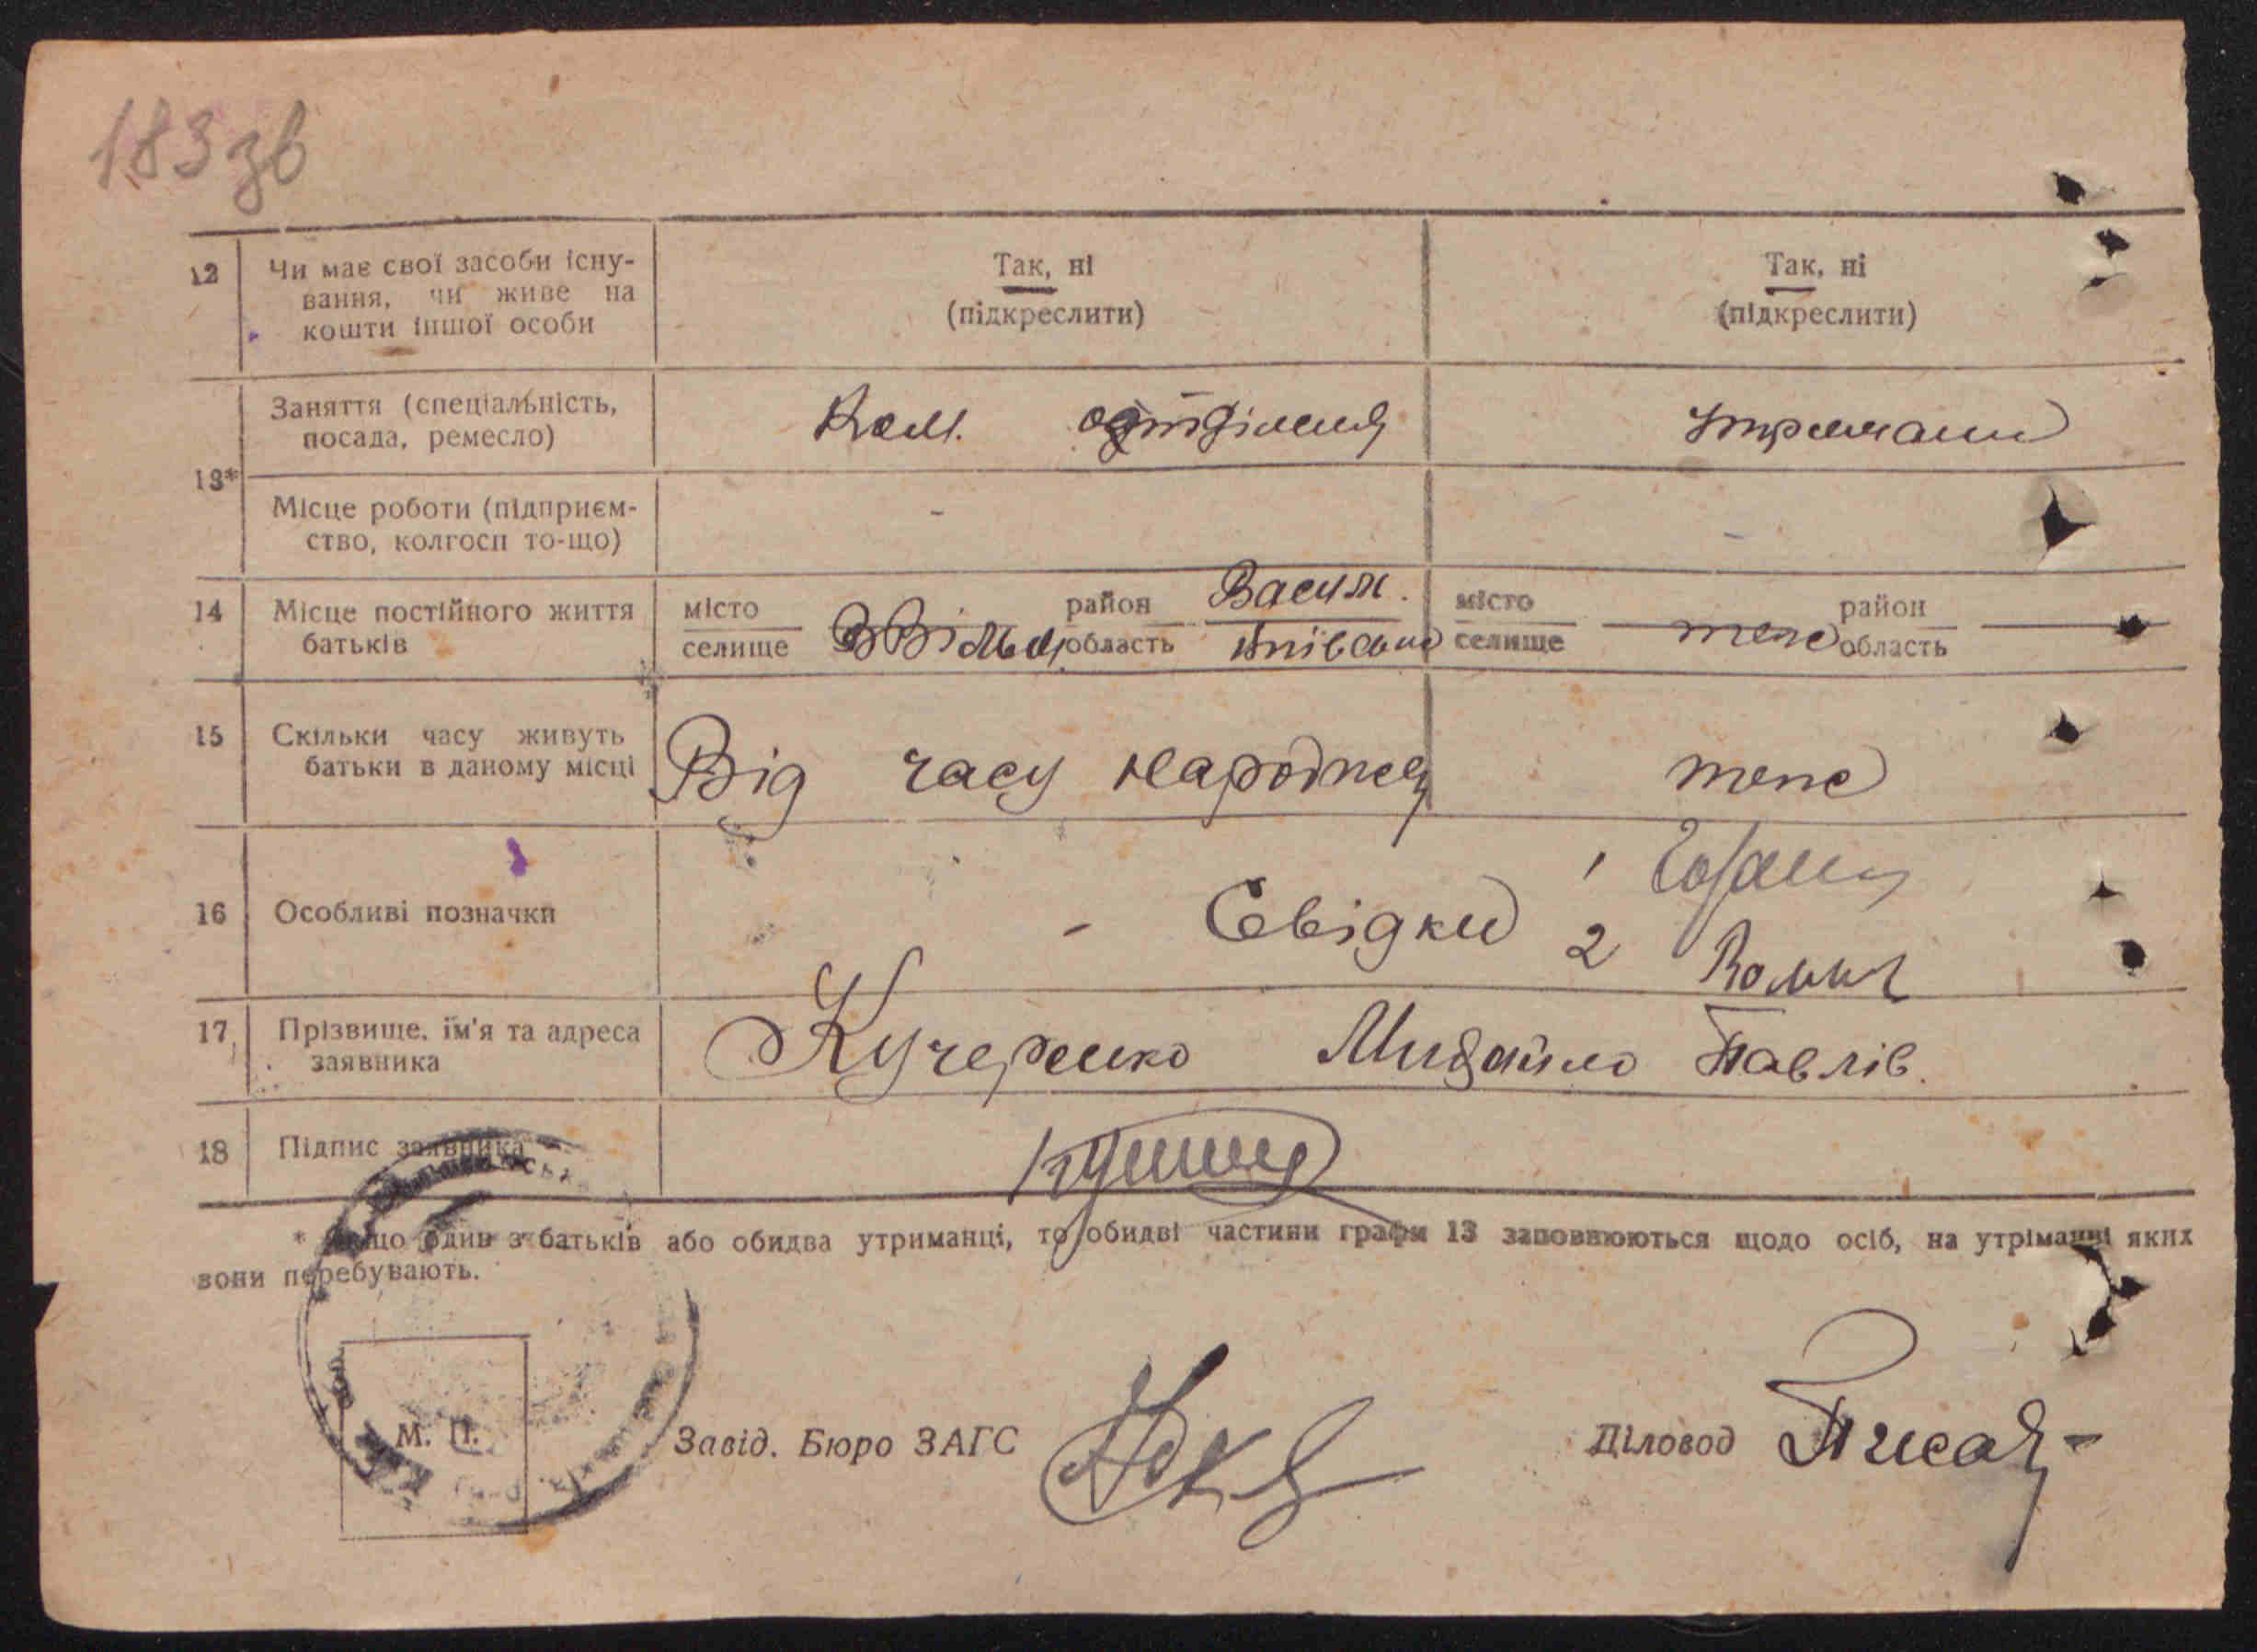 183 зв
12 Чи має свої засоби існу-
вання, чи живе на
кошти іншої особи
Так, ні
(підкреслити)
Так, ні
(підкреслити)
13*
Заняття (спеціальність,
посада, ремесло)
Ком.
Місце роботи (підприєм-
ство, колгосп то-що)
-
-
14 Місце постійного життя
батьків
місто
селище
район Васил.
область
місто
селище
теж
район
область
15 Скільки часу живуть
батьки в даному місці
Від часу
теж
16 Особливі позначки
- Свідки 1
2
17 Прізвище, ім'я та адреса
заявника
Кучеренко Михайло Павлів.
18 Підпис заявника
* Якщо один з батьків або обидва утриманці, то обидві частини графи 13 заповнюються щодо осіб, на утріманні яких
вони перебувають.
М. П.
Завід. Бюро ЗАГС
Діловод